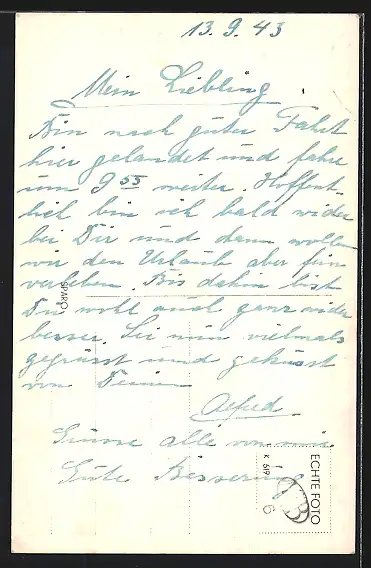 13.9.43
Mein Liebling.
Bin nach guter Fahrt
hier gelandet und fahre
um 9 55 weiter. Hoffent-
lich bin ich bald wider
bei Dir und dann wollen
wir den Urlaub aber fein
verleben. Bis dahin bist
Du wohl auch ganz wider
besser. Sei nun vielmals
gegrüsst und geküsst
von Deinem
Alfred.
Grüsse alle von mir.
Gute Besserung
SPARO
ECHTE FOTO
K 619
6